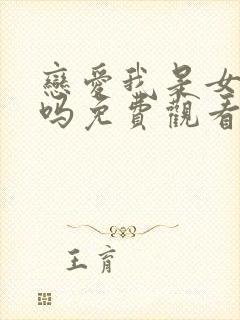 戀愛我呆女
吗免費觀看
王育